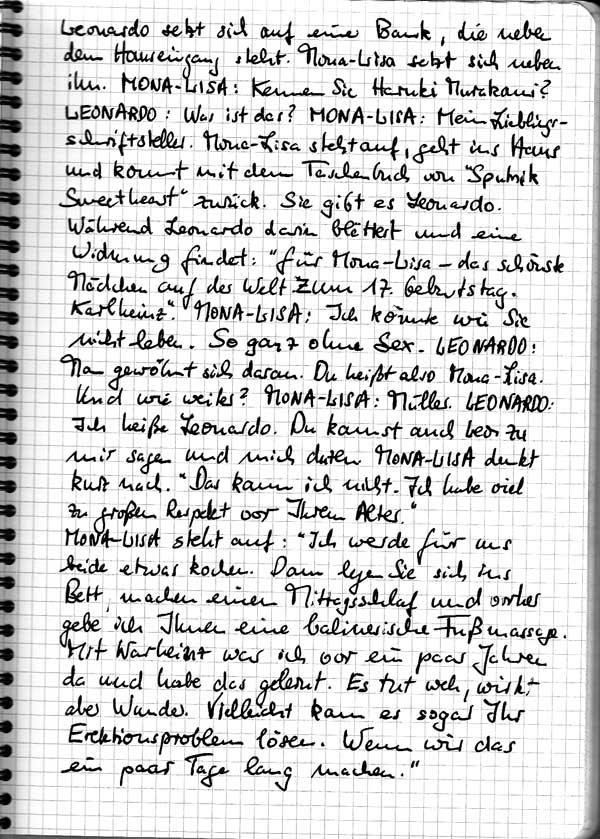 Leonardo setzt sich auf eine Bank, die neben
dem Hauseingang steht. Mona-Lisa setzt sich neben
ihn. MONA-LISA: Kennen Sie Haruki Murakami?
LEONARDO: Was ist das? MONA-LISA: Mein Lieblings-
schriftsteller. Mona-Lisa steht auf, geht ins Haus
und kommt mit dem Taschenbuch von "Sputnik
Sweetheart" zurück. Sie gibt es Leonardo.
Während Leonardo darin blättert und eine
Widmung findet: "Für Mona-Lisa – das schönste
Mädchen auf der Welt zum 17. Geburtstag.
Karlheinz". MONA-LISA: Ich könnte wie Sie
nicht leben. So ganz ohne Sex. LEONARDO:
Man gewöhnt sich daran. Du heißt also Mona-Lisa.
Und wie weiter? MONA-LISA: Müller. LEONARDO:
Ich heiße Leonardo. Du kannst auch Leo zu
mir sagen und mich duzen. MONA-LISA denkt
kurz nach. "Das kann ich nicht. Ich habe viel
zu großen Respekt vor Ihrem Alter."
MONA-LISA steht auf: "Ich werde für uns
beide etwas kochen. Dann legen Sie sich ins
Bett, machen einen Mittagsschlaf und vorher
gebe ich Ihnen eine balinesische Fußmassage.
Mit Karlheinz war ich vor ein paar Jahren
da und habe das gelernt. Es tut weh, wirkt
aber Wunder. Vielleicht kann es sogar Ihr
Erektionsproblem lösen. Wenn wir das
ein paar Tage lang machen."